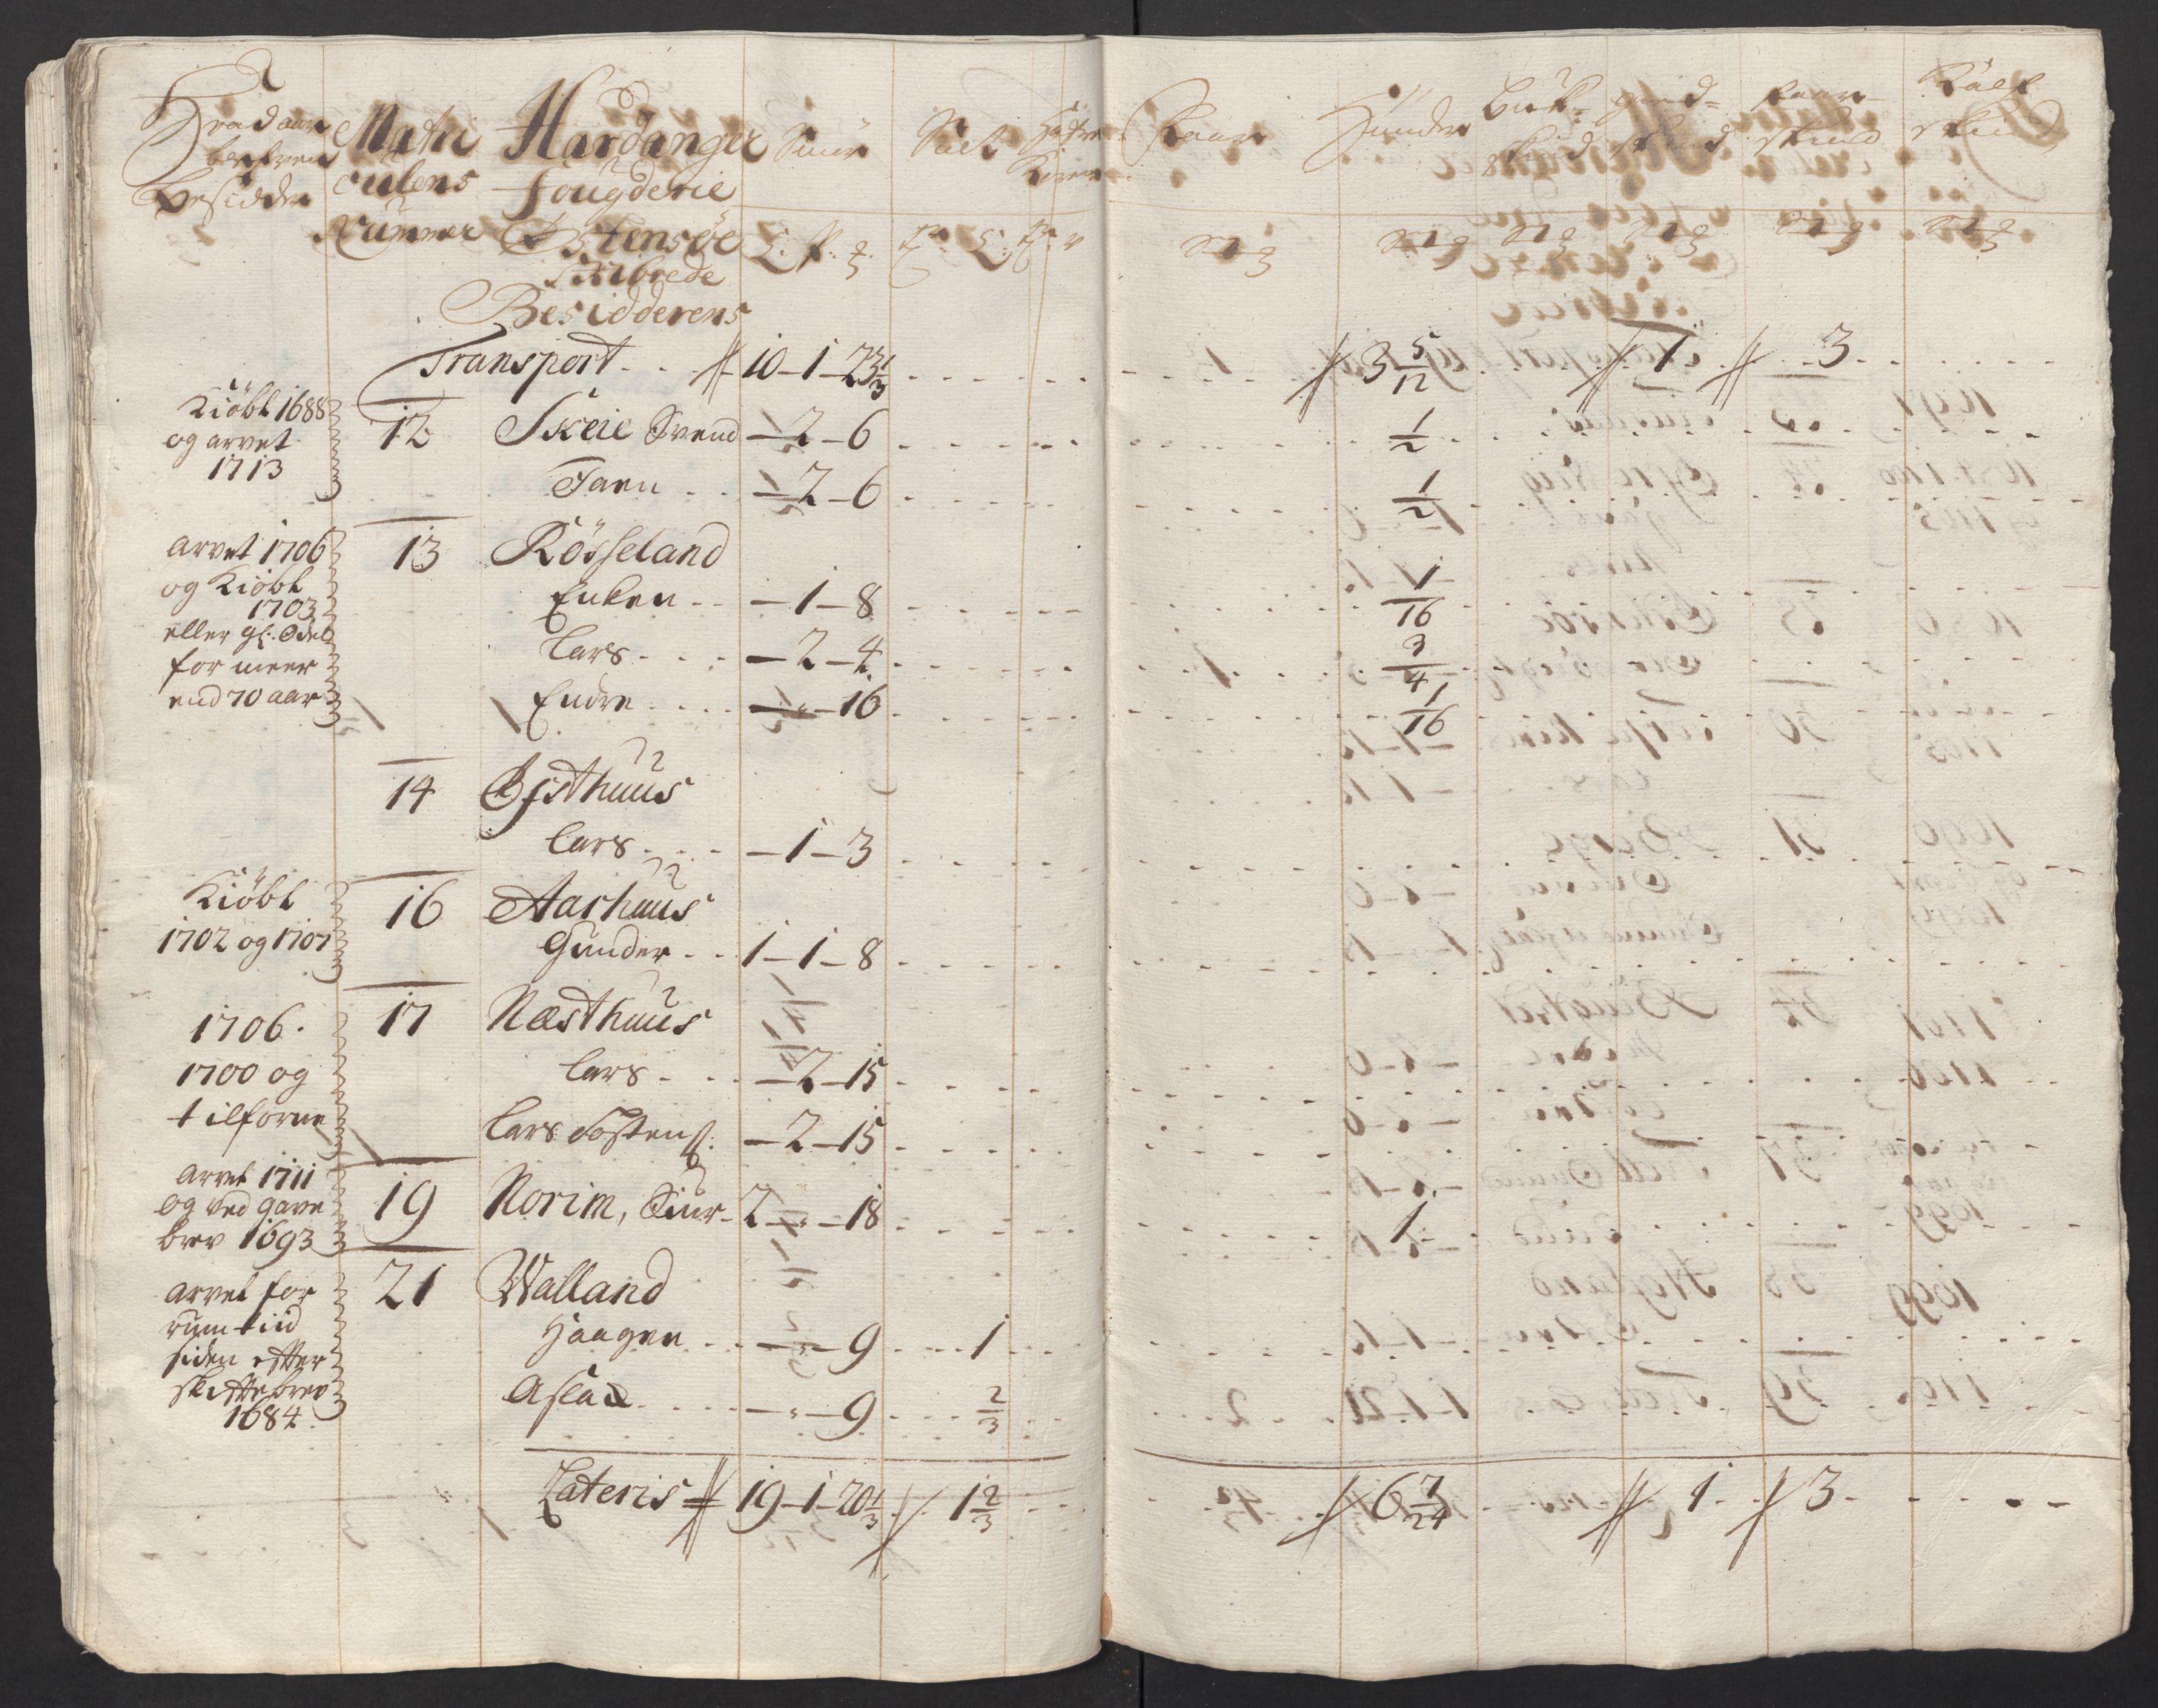 Hvad aar
bereven
besidder
Matri
culens
Nummer
Hardanger
fougderie
Østensøe
Skibrede
Besidderens
Smör
Salt
Huder
Bukskind
giedskind
faareskind
Kalfskind
Transport . . 10-1-23 1/3 3 5/12 1 3
Kiöbt 1688
og arvet
1713
12 Skeie Svend - 2 - 6 1/2
Faen . . - 2 - 6 1/2
arvet 1706
og Kiöbt
1703
eller gl: Odel
for meer
end 70 aar
13 Rösseland
Enken . . - 1 - 8 1/16
Lars . . . - 2 - 4 3/4
Endre . . . - 16 1/16
14 Østhuus
Lars . . . - 1 - 3
Kiöbt
1702 og 1707
16 Aarhuus
Gunder . . 1 - 1 - 8
1706.
1700 og
tilforne
17 Næsthuus
Lars . . . - 2 - 15
Lars Tosten . - 2 - 15
arvet 1711
og ved gave
brev 1693
19 Norim, Siur - 2 - - 18 1
arvet for
rum tiid
siden efter
skiftebrev
1684.
21 Walland
Haagen . . - - 9 1
Aslac . . . - - 9 2/3
Lateris 19-1-20 1/3 1 2/3 6 7/24 1 3